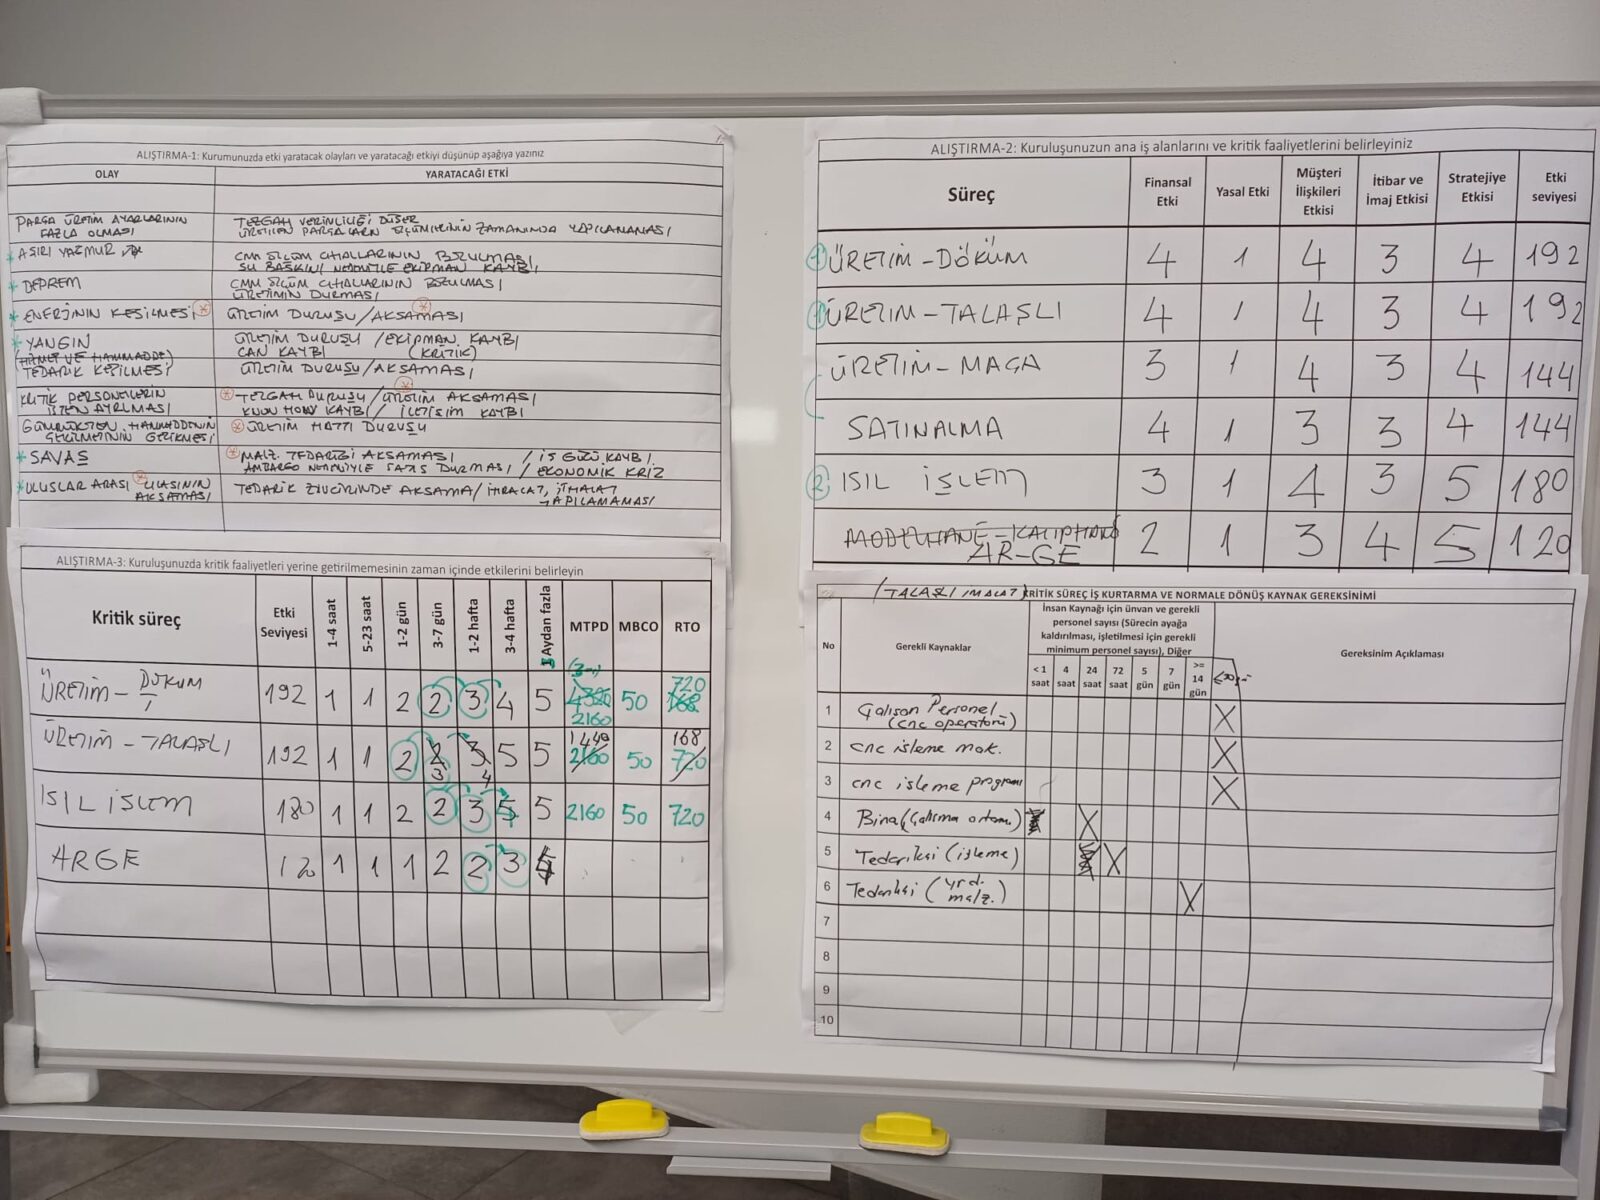 ALIŞTIRMA-1: Kurumunuzda etki yaratacak olayları ve yaratacağı etkiyi düşünüp aşağıya yazınız
OLAY YARATACAĞI ETKİ
PARÇA ÜRETİM AYARLARININ FAZLA OLMASI
TEZGAH VERİNLİLİĞİ DÜŞER
ÜRETİLEN PARÇALARIN ÖLÇÜMLERİNİN ZAMANINDA YAPILANAMASI
* AŞIRI YAĞMUR
CMM ÖLÇÜM CİHALLARININ BOZULMASI
SU BASKINI NEDENİYLE EKİPMAN KAYBI
* DEPREM
CMM ÖLÇÜM CİHALLARININ BOZULMASI
ÜRETİMİN DURMASI
* ENERJİNİN KESİLMESİ ÜRETİM DURUŞU/AKSAMASI
* YANGIN
ÜRETİM DURUŞU/EKİPMAN KAYBI
CAN KAYBI (KRİTİK)
TEDARİK KESİLMESİ ÜRETİM DURUŞU/AKSAMASI
KRİTİK PERSONELLERİN İŞTEN AYRLMASI
TEZGAH DURUŞU/ÜRETİM AKSAMASI
KNOW HOW KAYBI / İLETİŞİM KAYBI
GÜMRÜKTEN HAMMADDENİN ÇEKİLMESİNİN GECİKMESİ
ÜRETİM HATTI DURUŞU
* SAVAŞ
MALZ. TEDARİĞİ AKSAMASI / İŞ GÜCÜ KAYBI
AMBARGO NEDENİYLE SATIŞ DURMASI / EKONOMİK KRİZ
* ULUSLAR ARASI ULASININ AKSAMASI
TEDARİK ZİNCİRİNDE AKSAMA/İHRACAT, İTHALAT YAPILAMAMASI
ALIŞTIRMA-2: Kuruluşunuzun ana iş alanlarını ve kritik faaliyetlerini belirleyiniz
Süreç Finansal Etki Yasal Etki Müşteri İlişkileri Etkisi İtibar ve İmaj Etkisi Stratejiye Etkisi Etki seviyesi
1 ÜRETİM-DÖKÜM 4 1 4 3 4 192
1 ÜRETIM-TALAŞLI 4 1 4 3 4 192
ÜRETİM-MAÇA 3 1 4 3 4 144
SATINALMA 4 1 3 3 4 144
2 ISIL İŞLEM 3 1 4 3 5 180
MODELHANE-KALIPHANE
AR-GE 2 1 3 4 5 120
ALIŞTIRMA-3: Kuruluşunuzda kritik faaliyetleri yerine getirilmemesinin zaman içinde etkilerini belirleyin
Kritik süreç Etki Seviyesi 1-4 saat 5-23 saat 1-2 gün 3-7 gün 1-2 hafta 3-4 hafta 1 Aydan fazla MTPD MBCO RTO
ÜRETİM-DÖKÜM 192 1 1 2 2 3 4 5 4320 2160 50 720 168
ÜRETİM-TALAŞLI 192 1 1 2 2 3 3 4 5 5 1440 2160 50 168 720
ISIL İSLEM 180 1 1 2 2 3 5 5 2160 50 720
ARGE 120 1 1 1 2 2 3
(TALAŞLI İMALAT) KRİTİK SÜREÇ İŞ KURTARMA VE NORMALE DÖNÜŞ KAYNAK GEREKSİNİMİ
No Gerekli Kaynaklar
İnsan Kaynağı için ünvan ve gerekli
personel sayısı (Sürecin ayağa
kaldırılması, işletilmesi için gerekli
minimum personel sayısı), Diğer
Gereksinim Açıklaması
< 1 saat 4 saat 24 saat 72 saat 5 gün 7 gün >= 14 gün
1 Çalışan Personel (cnc operatörü) X
2 cnc işleme mak. X
3 cnc işleme programı X
4 Bina (Çalışma ortamı) X
5 Tedarikçi (işleme) X
6 Tedarikçi (yrd. malz.) X
7
8
9
10